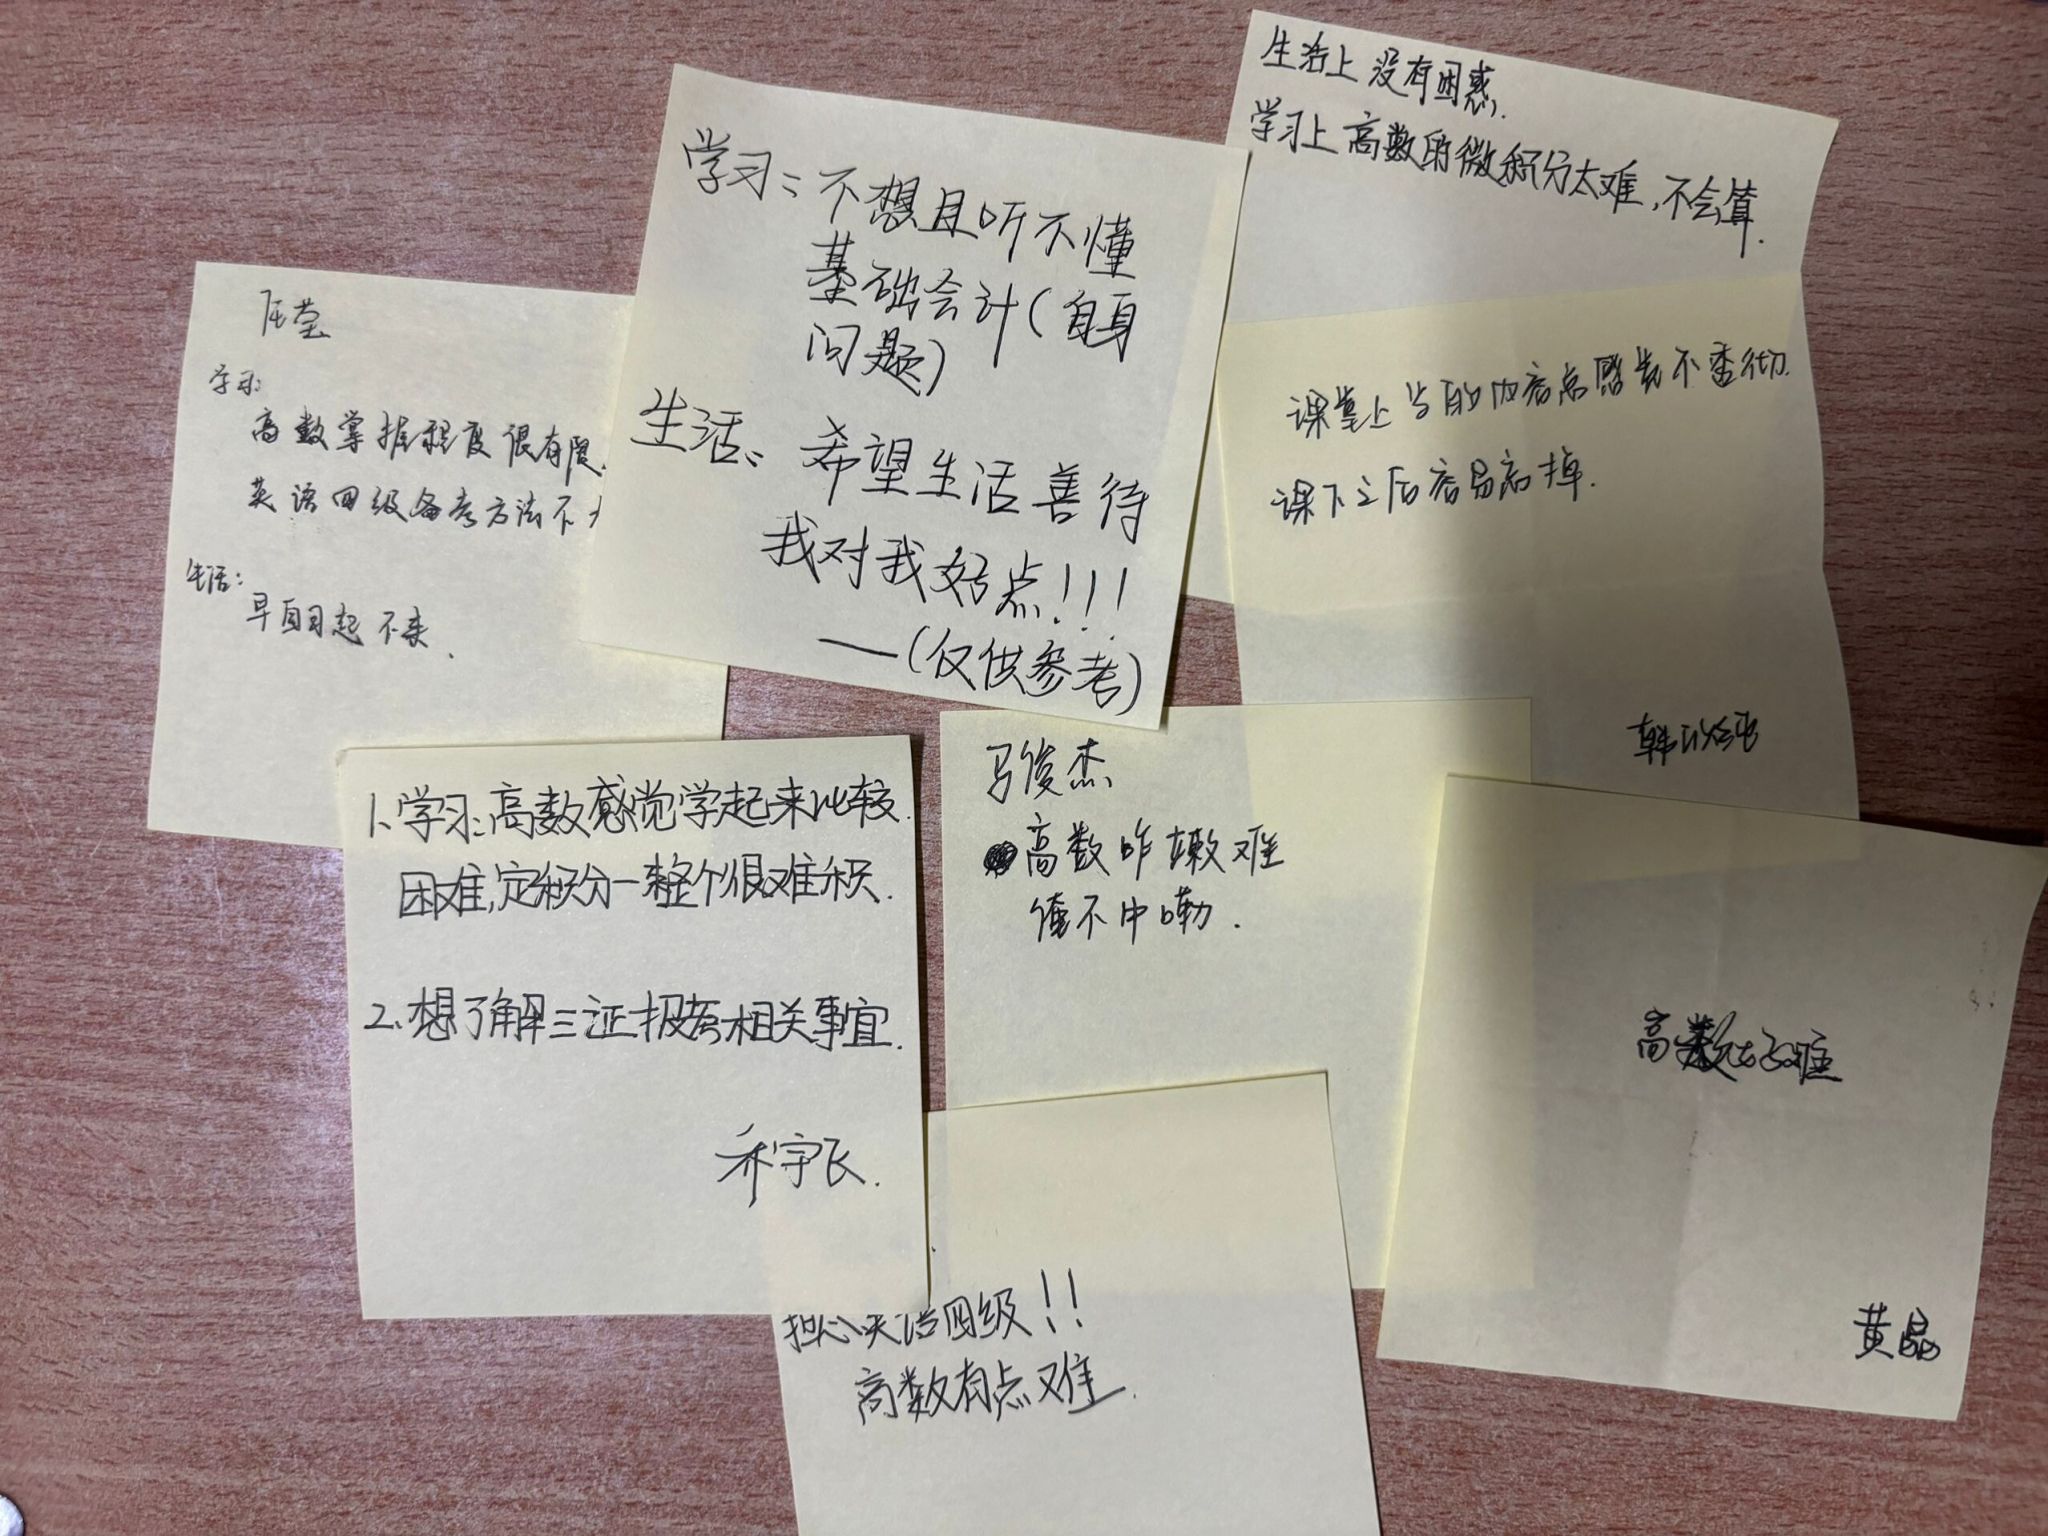 学习：
高数掌握程度很有限
英语四级备考方法不
生活：
早自习起不来.
学习：不想且听不懂
基础会计(自身
问题)
生活：希望生活善待
我对我好点!!!
—(仅供参考)
生活上没有困惑.
学习上高数的微积分太难,不会算.
课堂上学的内容总感觉不透彻.
课下之后容易忘掉.
韩
1、学习：高数感觉学起来比较
困难,定积分一整个很难积.
2、想了解三证报考相关事宜.
乔宇飞.
马俊杰
高数咋楝难
俺不中嘞.
高数太难
黄晶
担心英语四级!!
高数有点难.